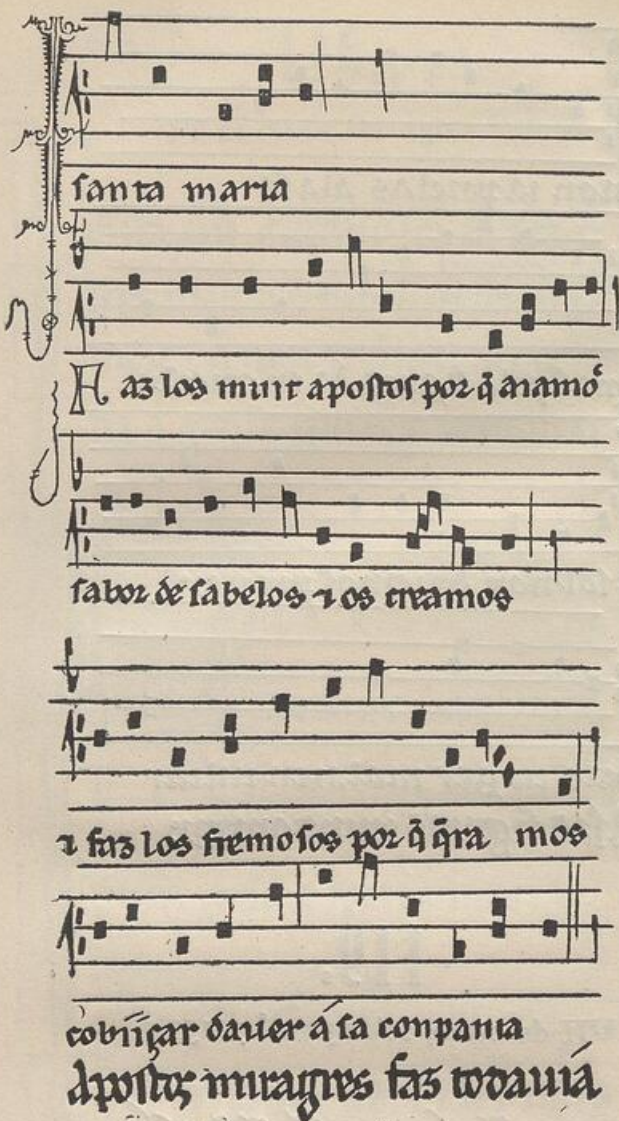 santa maria
Faz los muit apostos por q̄ aiamoˢ
sabor de sabelos ⁊ os creamos
⁊ faz los fremosos por q̄ q̄ramos
cobiiçar dauer á sa conpania
Apostos miragres faz todauiá